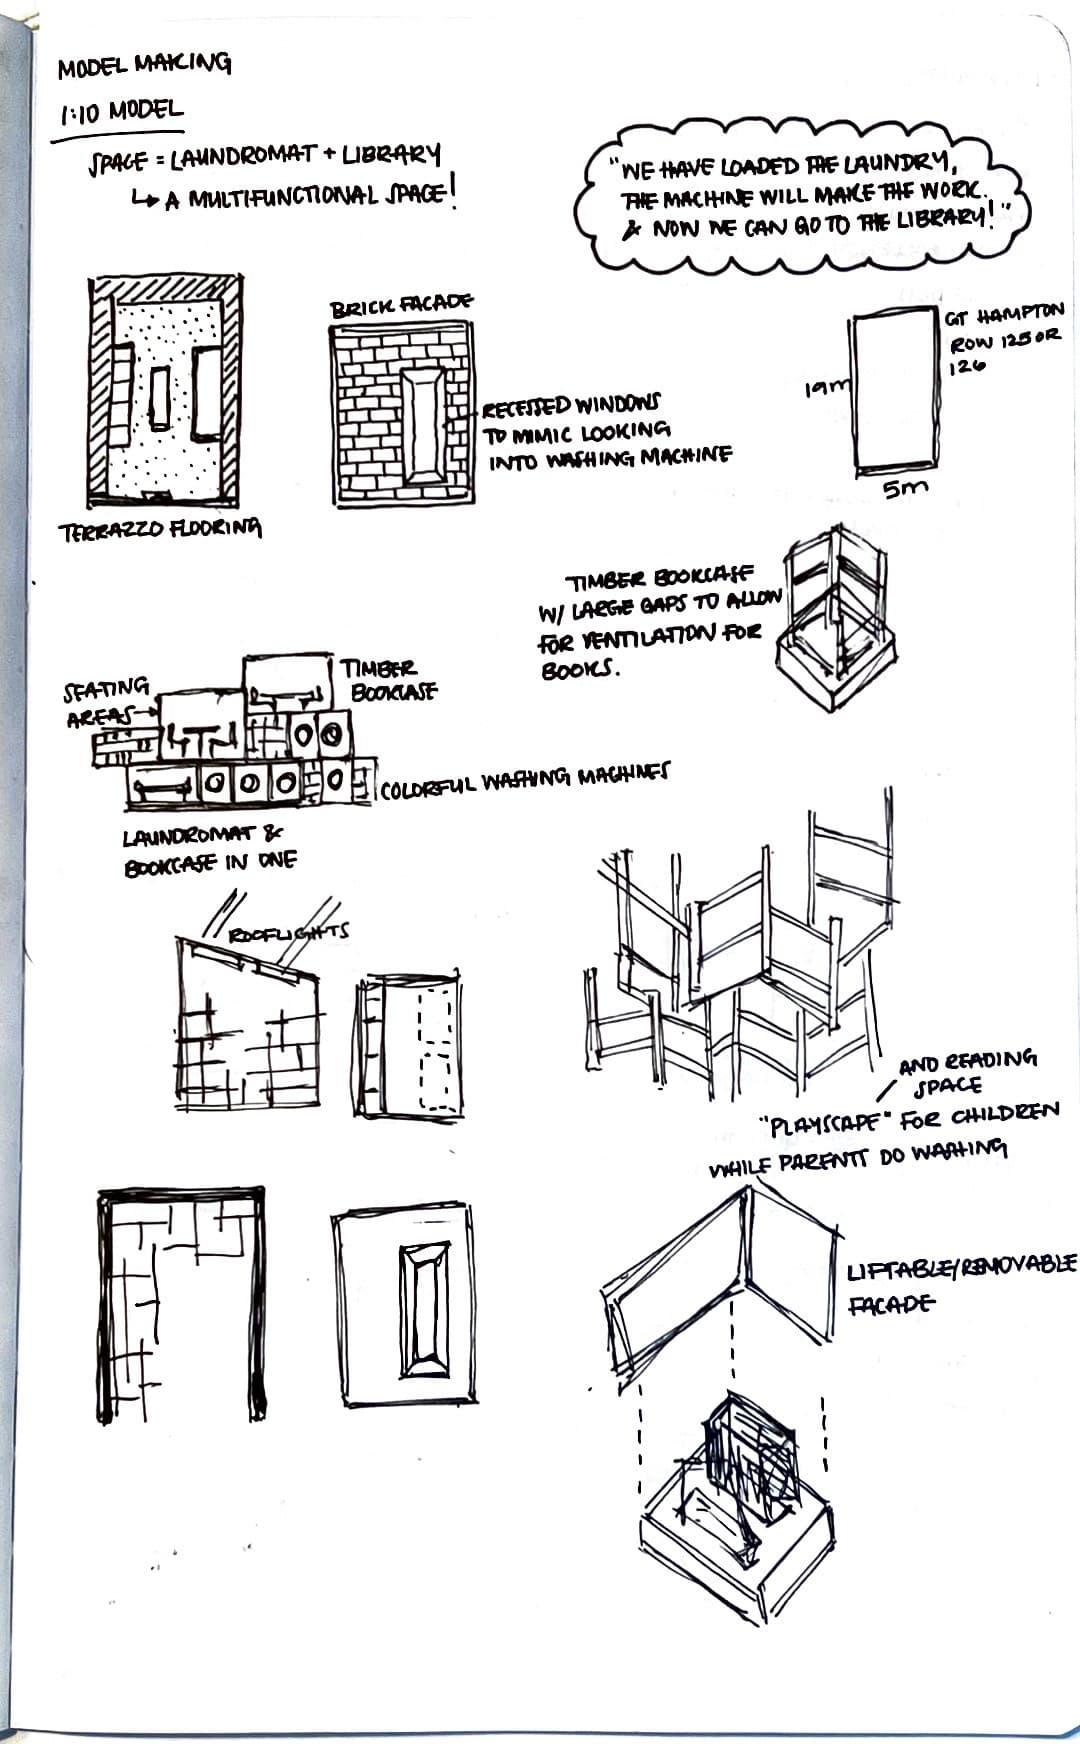 MODEL MAKING
1:10 MODEL
SPACE = LAUNDROMAT + LIBRARY
↳ A MULTIFUNCTIONAL SPACE!
"WE HAVE LOADED THE LAUNDRY,
THE MACHINE WILL MAKE THE WORK.
& NOW WE CAN GO TO THE LIBRARY!"
TERRAZZO FLOORING
BRICK FACADE
RECESSED WINDOWS
TO MIMIC LOOKING
INTO WASHING MACHINE
GT HAMPTON
ROW 125 OR
126
19m
5m
TIMBER BOOKCASE
W/ LARGE GAPS TO ALLOW
FOR VENTILATION FOR
BOOKS.
SEATING
AREAS
TIMBER
BOOKCASE
COLORFUL WASHING MACHINES
LAUNDROMAT &
BOOKCASE IN ONE
ROOFLIGHTS
AND READING
SPACE
"PLAYSCAPE" FOR CHILDREN
WHILE PARENTS DO WASHING
LIFTABLE/REMOVABLE
FACADE